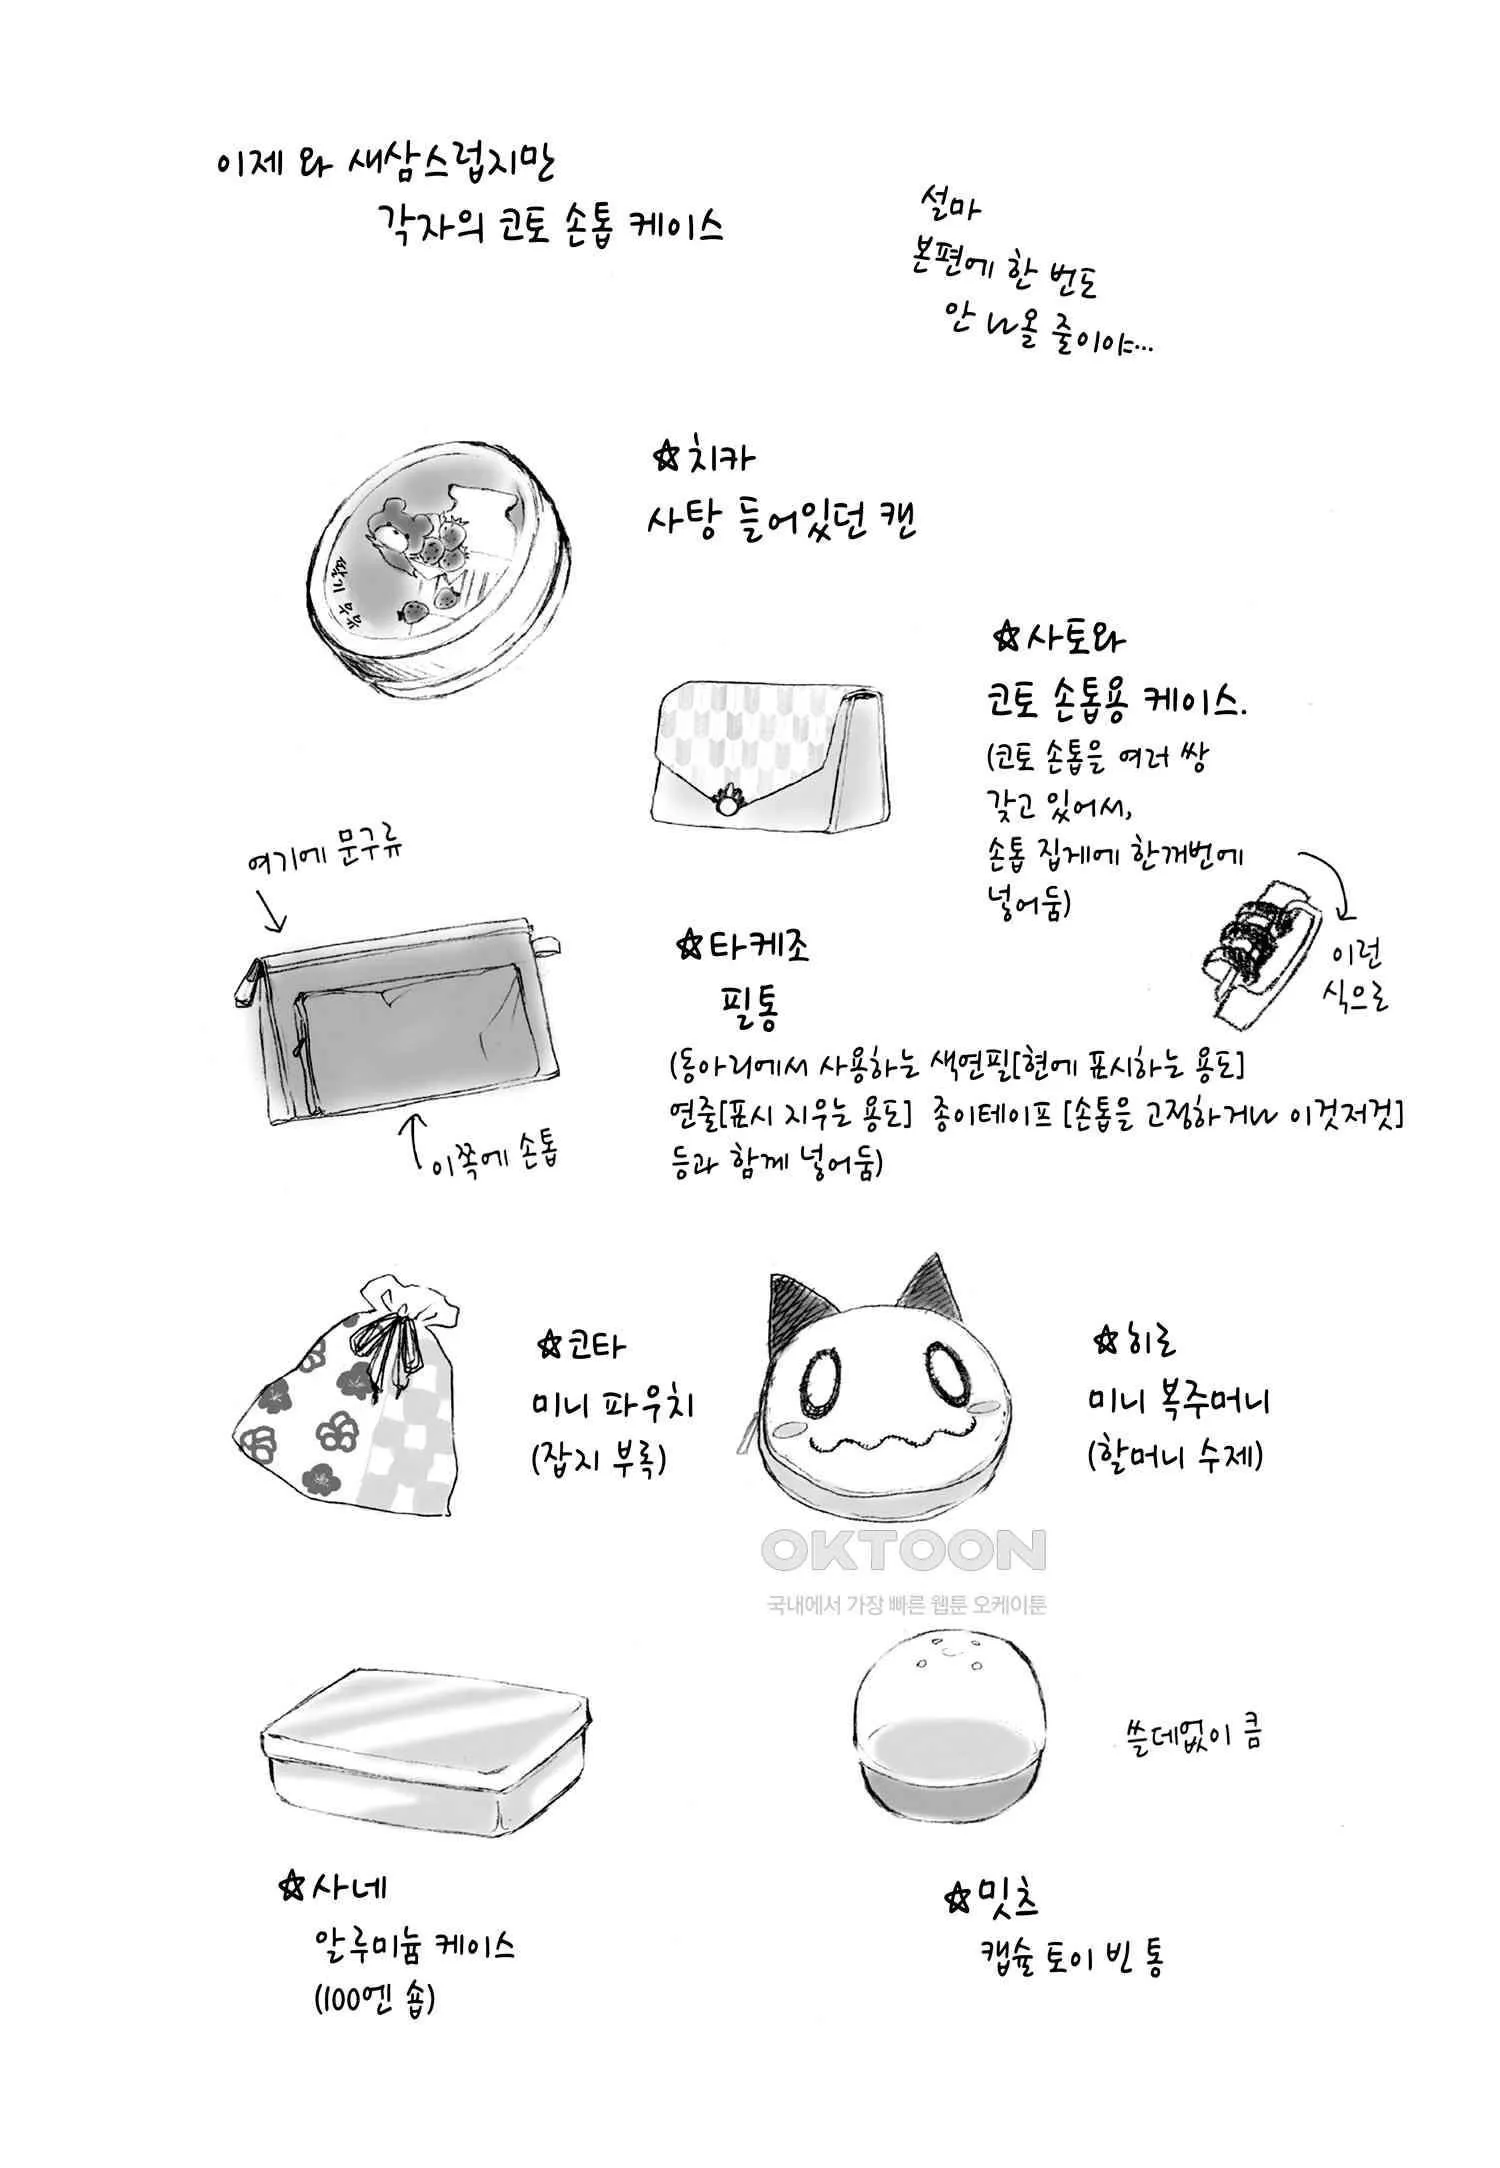 이제 와 새삼스럽지만
각자의 코토 손톱 케이스
설마
본편에 한 번도
안 나올 줄이야…
☆치카
사탕 들어있던 캔
딸기 슝슝
☆사토와
코토 손톱용 케이스.
(코토 손톱을 여러 쌍
갖고 있어서,
손톱 집게에 한꺼번에
넣어둠)
이런
식으로
여기에 문구류
이쪽에 손톱
☆타케조
필통
(동아리에서 사용하는 색연필[현에 표시하는 용도]
연줄[표시 지우는 용도] 종이테이프 [손톱을 고정하거나 이것저것]
등과 함께 넣어둠)
☆코타
미니 파우치
(잡지 부록)
☆히로
미니 복주머니
(할머니 수제)
OKTOON
국내에서 가장 빠른 웹툰 오케이툰
☆사네
알루미늄 케이스
(100엔 숍)
쓸데없이 큼
☆밋츠
캡슐 토이 빈 통